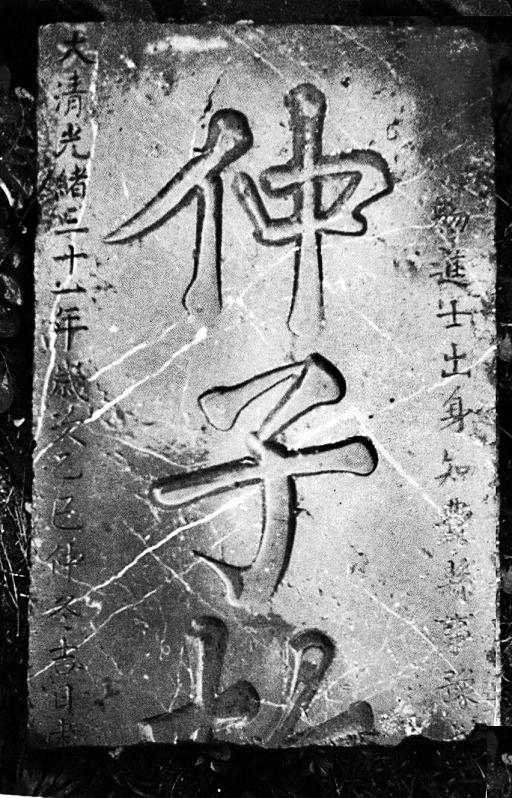 賜進士出身知豐縣事豫
仲子
大清光緒三十一年歲次乙巳仲冬吉日